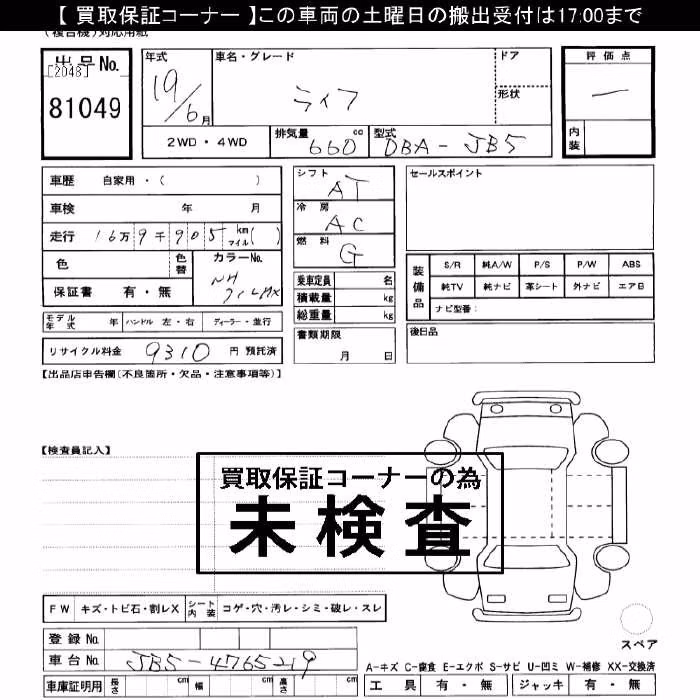 【 買取保証コーナー 】この車両の土曜日の搬出受付は17:00まで
(複合機)対応用紙
出品No.
[2048]
81049
年式
19/6月
車名・グレード
ライフ
ドア
形状
評価点
—
内装
2WD・4WD
排気量 660 cc
型式 DBA-JB5
車歴 自家用・( )
車検 年 月
走行 16万9千905 km マイル( )
色
色替
カラーNo.
NH
保証書 有・無
モデル年式 年 ハンドル 左・右 ディーラー・並行
リサイクル料金 9310 円 預託済
シフト AT
冷房 AC
燃料 G
乗車定員 名
積載量 kg
総重量 kg
書類期限
月 日
セールスポイント
装備品
S/R 純A/W P/S P/W ABS
純TV 純ナビ 革シート 外ナビ エアB
ナビ型番:
後日品
【出品店申告欄(不良箇所・欠品・注意事項等)】
【検査員記入】
買取保証コーナーの為
未検査
FW キズ・トビ石・割レX シート内装 コゲ・穴・汚レ・シミ・破レ・スレ
スペア
登録No.
車台No. JB5-4765219
A-キズ C-腐食 E-エクボ S-サビ U-凹ミ W-補修 XX-交換済
車庫証明用 長さ cm 幅 cm 高さ cm
工具 有・無 ジャッキ 有・無